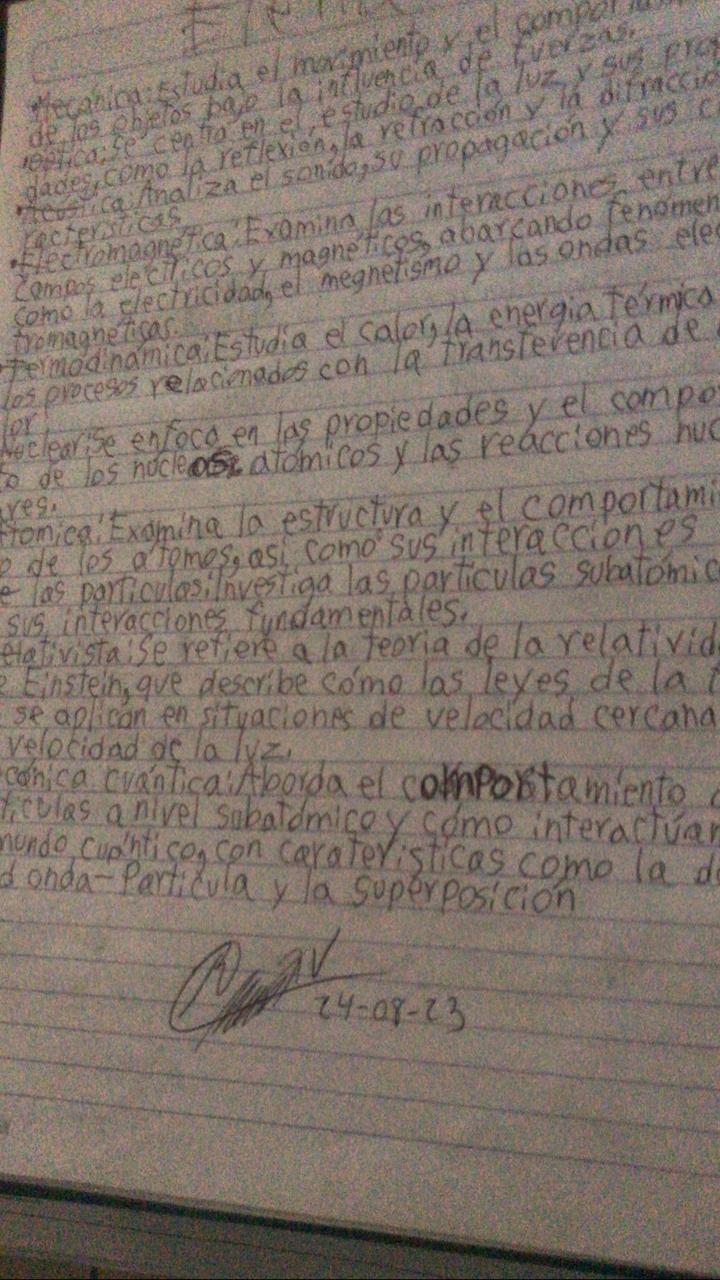 Mecánica: Estudia el movimiento y el comportam
de los objetos bajo la influencia de fuerzas.
óptica: se centra en el estudio de la luz y sus prop
dades, como la reflexión, la refracción y la difracció
Acústica: Analiza el sonido, su propagación y sus c
racterísticas
Electromagnética: Examina las interacciones entre
campos eléctricos y magnéticos, abarcando fenómen
como la electricidad, el megnetismo y las ondas elec
tromagnéticas.
Termodinámica: Estudia el calor, la energía térmica
los procesos relacionados con la transferencia de
lor
Nuclear: se enfoca en las propiedades y el compo
to de los núcleos atómicos y las reacciones nuc
res.
Atómica: Examina la estructura y el comportami
o de los átomos, así como sus interacciones
e las partículas: Investiga las partículas subatómic
sus interacciones fundamentales.
elativista: Se refiere a la teoría de la relativid
e Einstein, que describe cómo las leyes de la f
se aplican en situaciones de velocidad cercana
velocidad de la luz.
cánica cuántica: Aborda el comportamiento d
tículas a nivel subatómico y cómo interactúan
mundo cuántico, con caraterísticas como la d
d onda-Partícula y la superposición
24-08-23